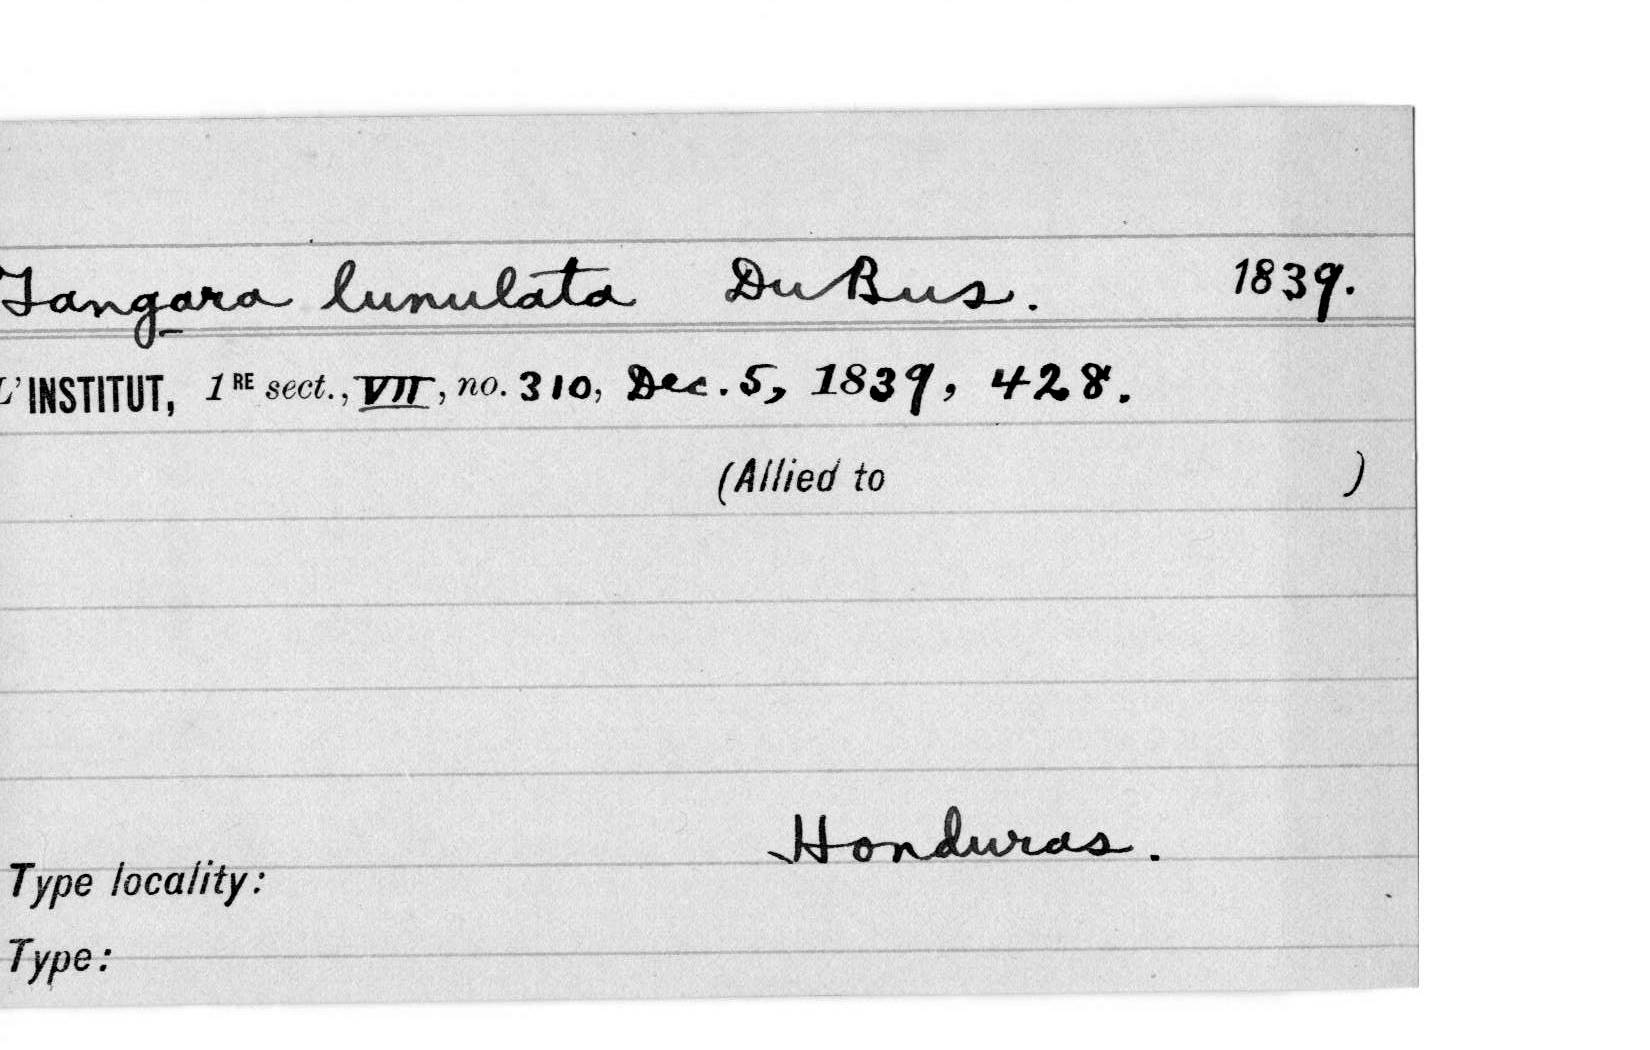 Tangara lunulata Du Bus. 1839.
L'INSTITUT, 1RE sect., VII, no. 310, Dec. 5, 1839, 428.
(Allied to )
Honduras.
Type locality:
Type: